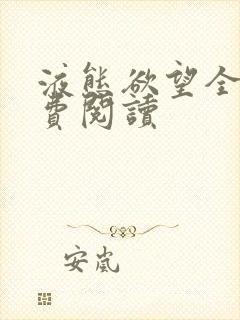 液態欲望全
費閱讀
安嵐